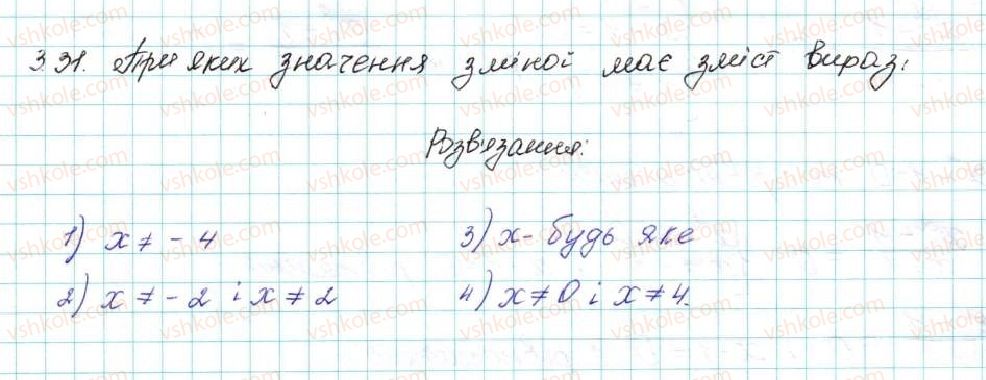 3.31. При яких значення зміної має зміст вираз:
Розв'язання:
1) x ≠ - 4
3) x - будь яке
2) x ≠ - 2 і x ≠ 2
4) x ≠ 0 і x ≠ 4.
vshkole.com